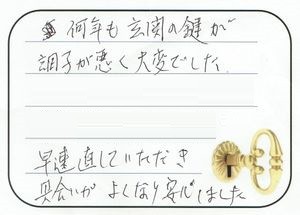 何年も玄関の鍵が
調子が悪く大変でした
早速直していただき
具合いがよくなり安心しました